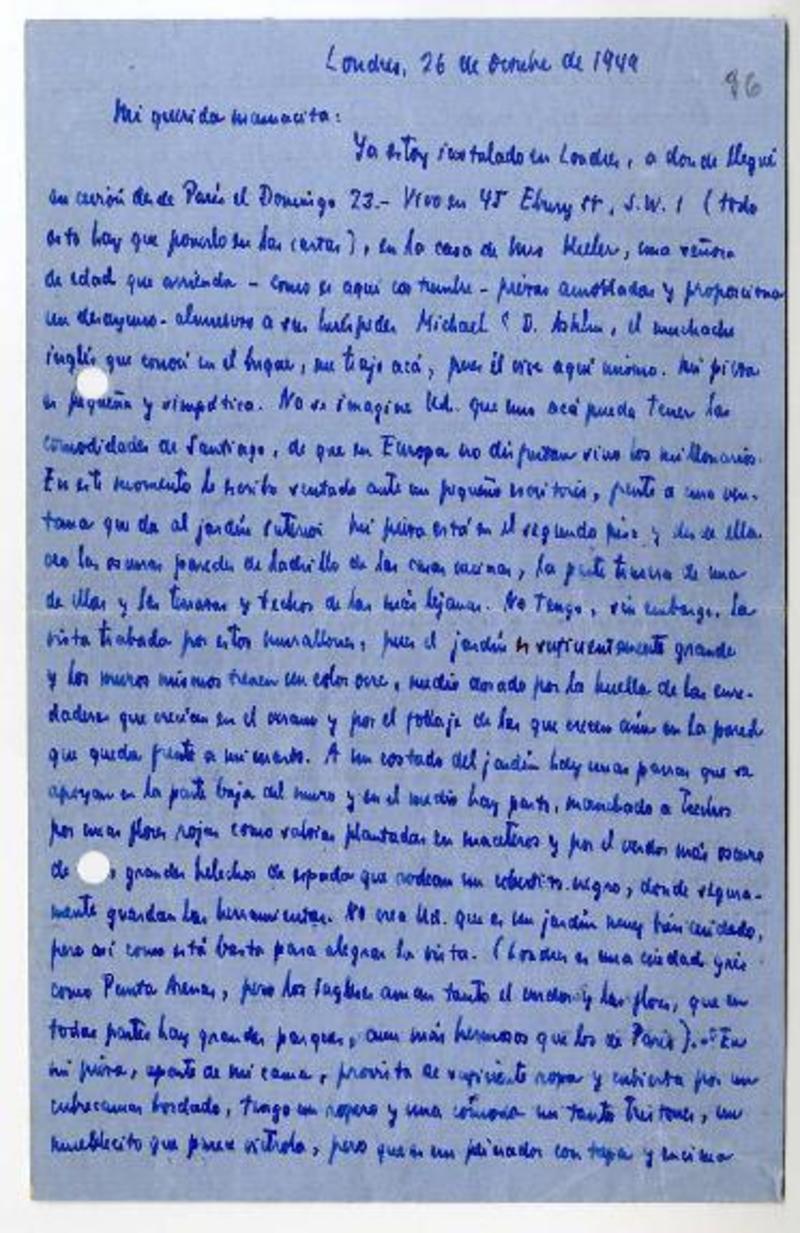 Londres, 26 de Octubre de 1949
86
Mi querida mamacita:
Ya estoy instalado en Londres, a donde llegué
en avión desde París el Domingo 23.- Vivo en 45 Ebury St, S.W. 1 (todo
esto hay que ponerlo en las cartas), en la casa de Miss Keeler, una señora
de edad que arrienda - como es aquí costumbre - piezas amobladas y proporciona
un desayuno-almuerzo a sus huéspedes Michael D. el muchacho
inglés que conocí en el buque, me trajo acá, pues él vive aquí mismo. Mi pieza
es pequeña y simpática. No se imagine Ud. que uno acá pueda tener las
comodidades de Santiago, de que en Europa no disfrutan sino los millonarios.
En este momento le escribo sentado ante un pequeño escritorio, frente a una ven-
tana que da al jardín interior Mi pieza está en el segundo piso y desde ella
veo las oscuras paredes de ladrillo de las casas vecinas, la parte trasera de una
de ellas y las terrazas y techos de las más lejanas. No tengo, sin embargo, la
vista trabada por estos murallones, pues el jardín es suficientemente grande
y los muros mismos tienen un color ocre, medio dorado por la huella de las enre-
daderas que crecían en el verano y por el follaje de las que crecen aún en la pared
que queda frente a mi cuarto. A un costado del jardín hay unas parras que se
apoyan en la parte baja del muro y en el medio hay pasto, manchado a trechos
por unas flores rojas como salvias plantadas en maceteros y por el verdor más oscuro
de grandes helechos de espada que rodean un cobertizo negro, donde segura-
mente guardan las herramientas. No crea Ud. que es un jardín muy bien cuidado,
pero así como está basta para alegrar la vista. (Londres es una ciudad gris
como Punta Arenas, pero los ingleses aman tanto el verdor y las flores, que en
todas partes hay grandes parques, aun más hermosos que los de París).- En
mi pieza, aparte de mi cama, provista de suficiente ropa y cubierta por un
cubrecamas bordado, tengo un ropero y una cómoda un tanto tristones, un
mueblecito que parece victrola, pero que es un peinador con tapa y encima